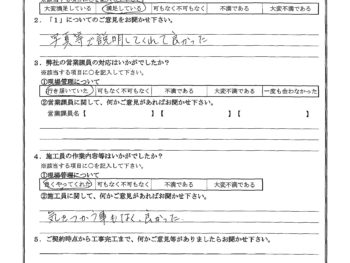 大変満足している 満足している 可もなく不可もなく 不満である 大変不満である
2．「1」についてのご意見をお聞かせ下さい。
写真等で説明してくれて良かった
3．弊社の営業課員の対応はいかがでしたか？
※該当する項目に○を記入して下さい。
①現場管理について
行き届いていた 可もなく不可もなく 不満である 大変不満である 一度も会わなかった
②営業課員に関して、何かご意見があればお聞かせ下さい。
営業課員名【 】【 】【 】
4．施工員の作業内容等はいかがでしたか？
※該当する項目に○を記入して下さい。
①現場管理について
良くやってくれた 可もなく不可もなく 不満である 大変不満である
②施工員に関して、何かご意見があればお聞かせ下さい。
気をつかう事もなく、良かった
5．ご契約時点から工事完工まで、何かご意見等がありましたらお聞かせ下さい。